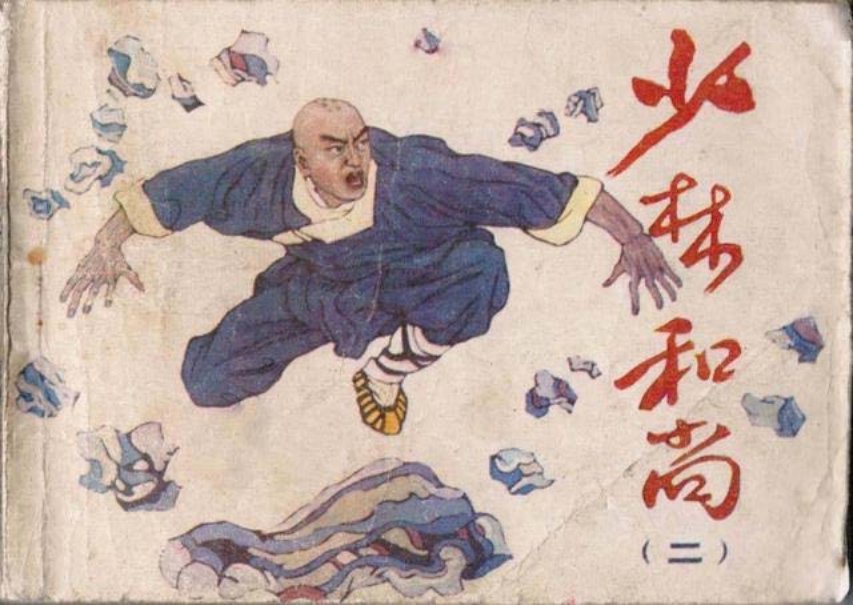 少林和尚
（二）